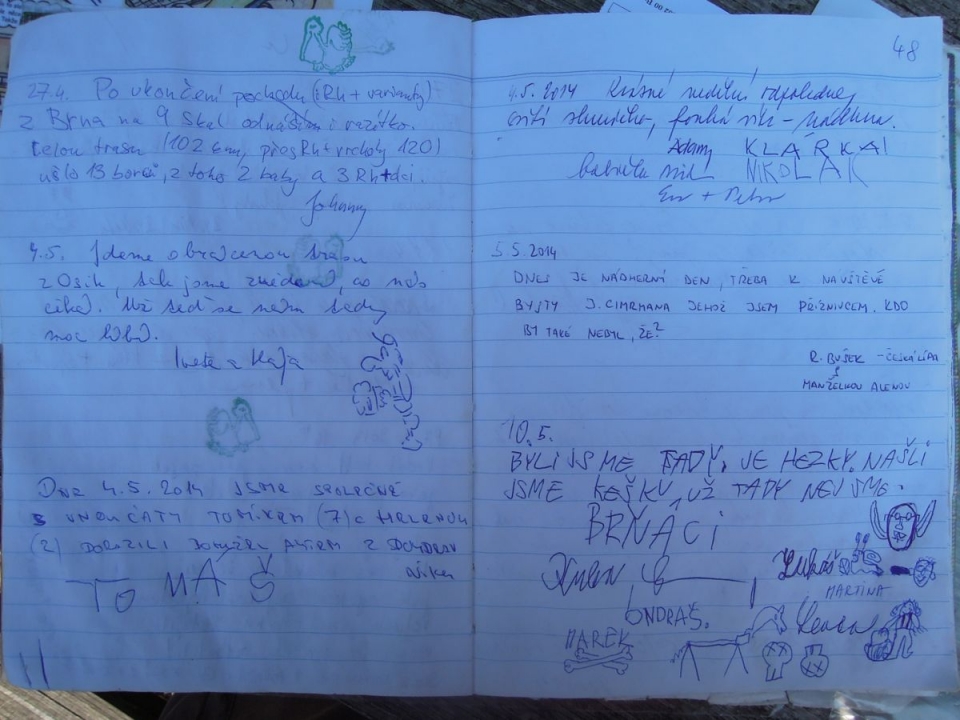 27.4. Po ukončení pochodu (:Rh + varianty)
z Brna na 9 Skal odnáším i razítko.
Celou trasu (102 km, přes Rh+vrcholy 120)
ušlo 13 borců, z toho 2 baby a 3 Rh+áci.
Johnny
4.5. Jdeme obrácenou trasu
z Osik, tak jsme zvědavé, co nás
čeká. Už teď se nám tady
moc líbí.
Iveta a Kája
Dne 4.5.2014 JSME SPOLEČNĚ
S VNOUČATY TOMÍKEM (7) a HELENOU
(2) DORAZILI
TOMÁŠ
48
4.5. 2014 Krásné nedělní odpoledne,
svítí sluníčko, fouká vítr - nádhera.
Adamy KLÁRKA
babička NIKOLAK
Eva + Petr
5.5.2014
DNES JE NÁDHERNÍ DEN, TŘEBA K NAVŠTĚVĚ
BYSTY J. CIMRMANA JEHOŽ JSEM PŘÍZNIVCEM. KDO
BY TAKÉ NEBYL, ŽE?
R. BUŠEK - ČESKÁ LÍPA
S
MANŽELKOU ALENOU
10.5.
BYLI JSME TADY. JE HEZKY. NAŠLI
JSME KEŠKU, UŽ TADY NEJSME.
BRŇÁCI
Lukáš
MARTINA
ONDRÁŠ.
MAREK